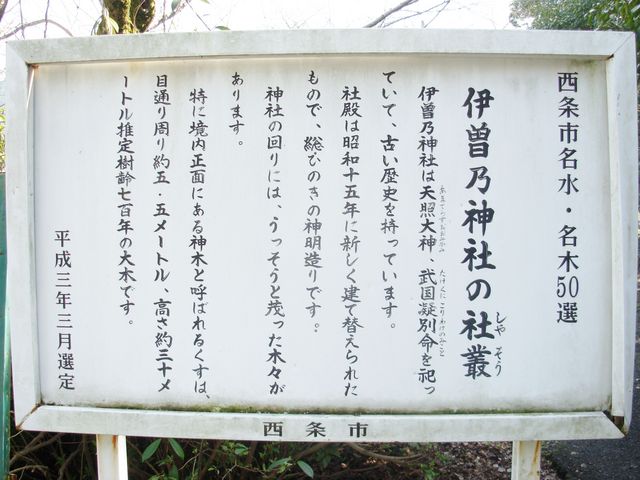 西条市名水・名木50選
伊曽乃神社の社叢
しゃそう
伊曽乃神社は天照大神、武国凝別命を祀っ
あまてらすおおみかみ
たけくにこりわけのみこと
ていて、古い歴史を持っています。
社殿は昭和十五年に新しく建て替えられた
もので、総ひのきの神明造りです。
神社の回りには、うっそうと茂った木々が
あります。
特に境内正面にある神木と呼ばれるくすは、
目通り周り約五・五メートル、高さ約三十メ
ートル推定樹齢七百年の大木です。
平成三年三月選定
西条市